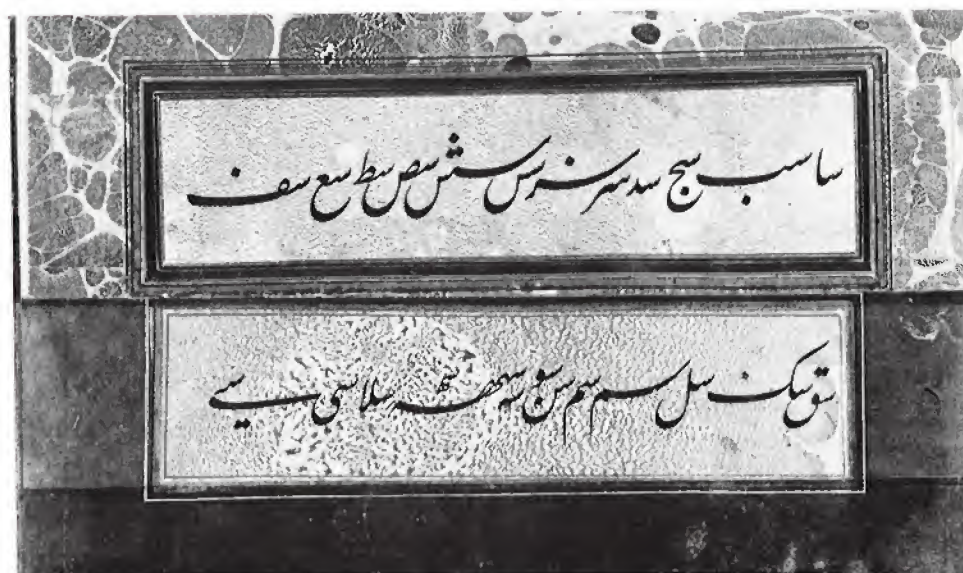 سا سب سج سد سر سر سس سش سص سط سع سف
سق سک سل سم سم سن سو سه سهه سلا سی سے